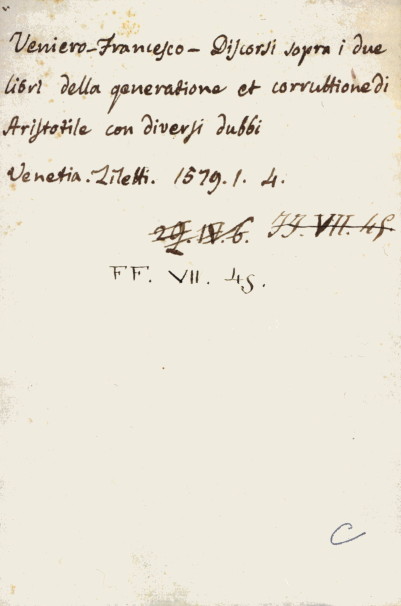 Veniero-Francesco - Discorsi sopra i due
libri della generatione et corruttione di
Aristotile con diversi dubbi
Venetia. Ziletti. 1579. 1. 4.
JJ. VII. 45.
FF. VII. 45.
C